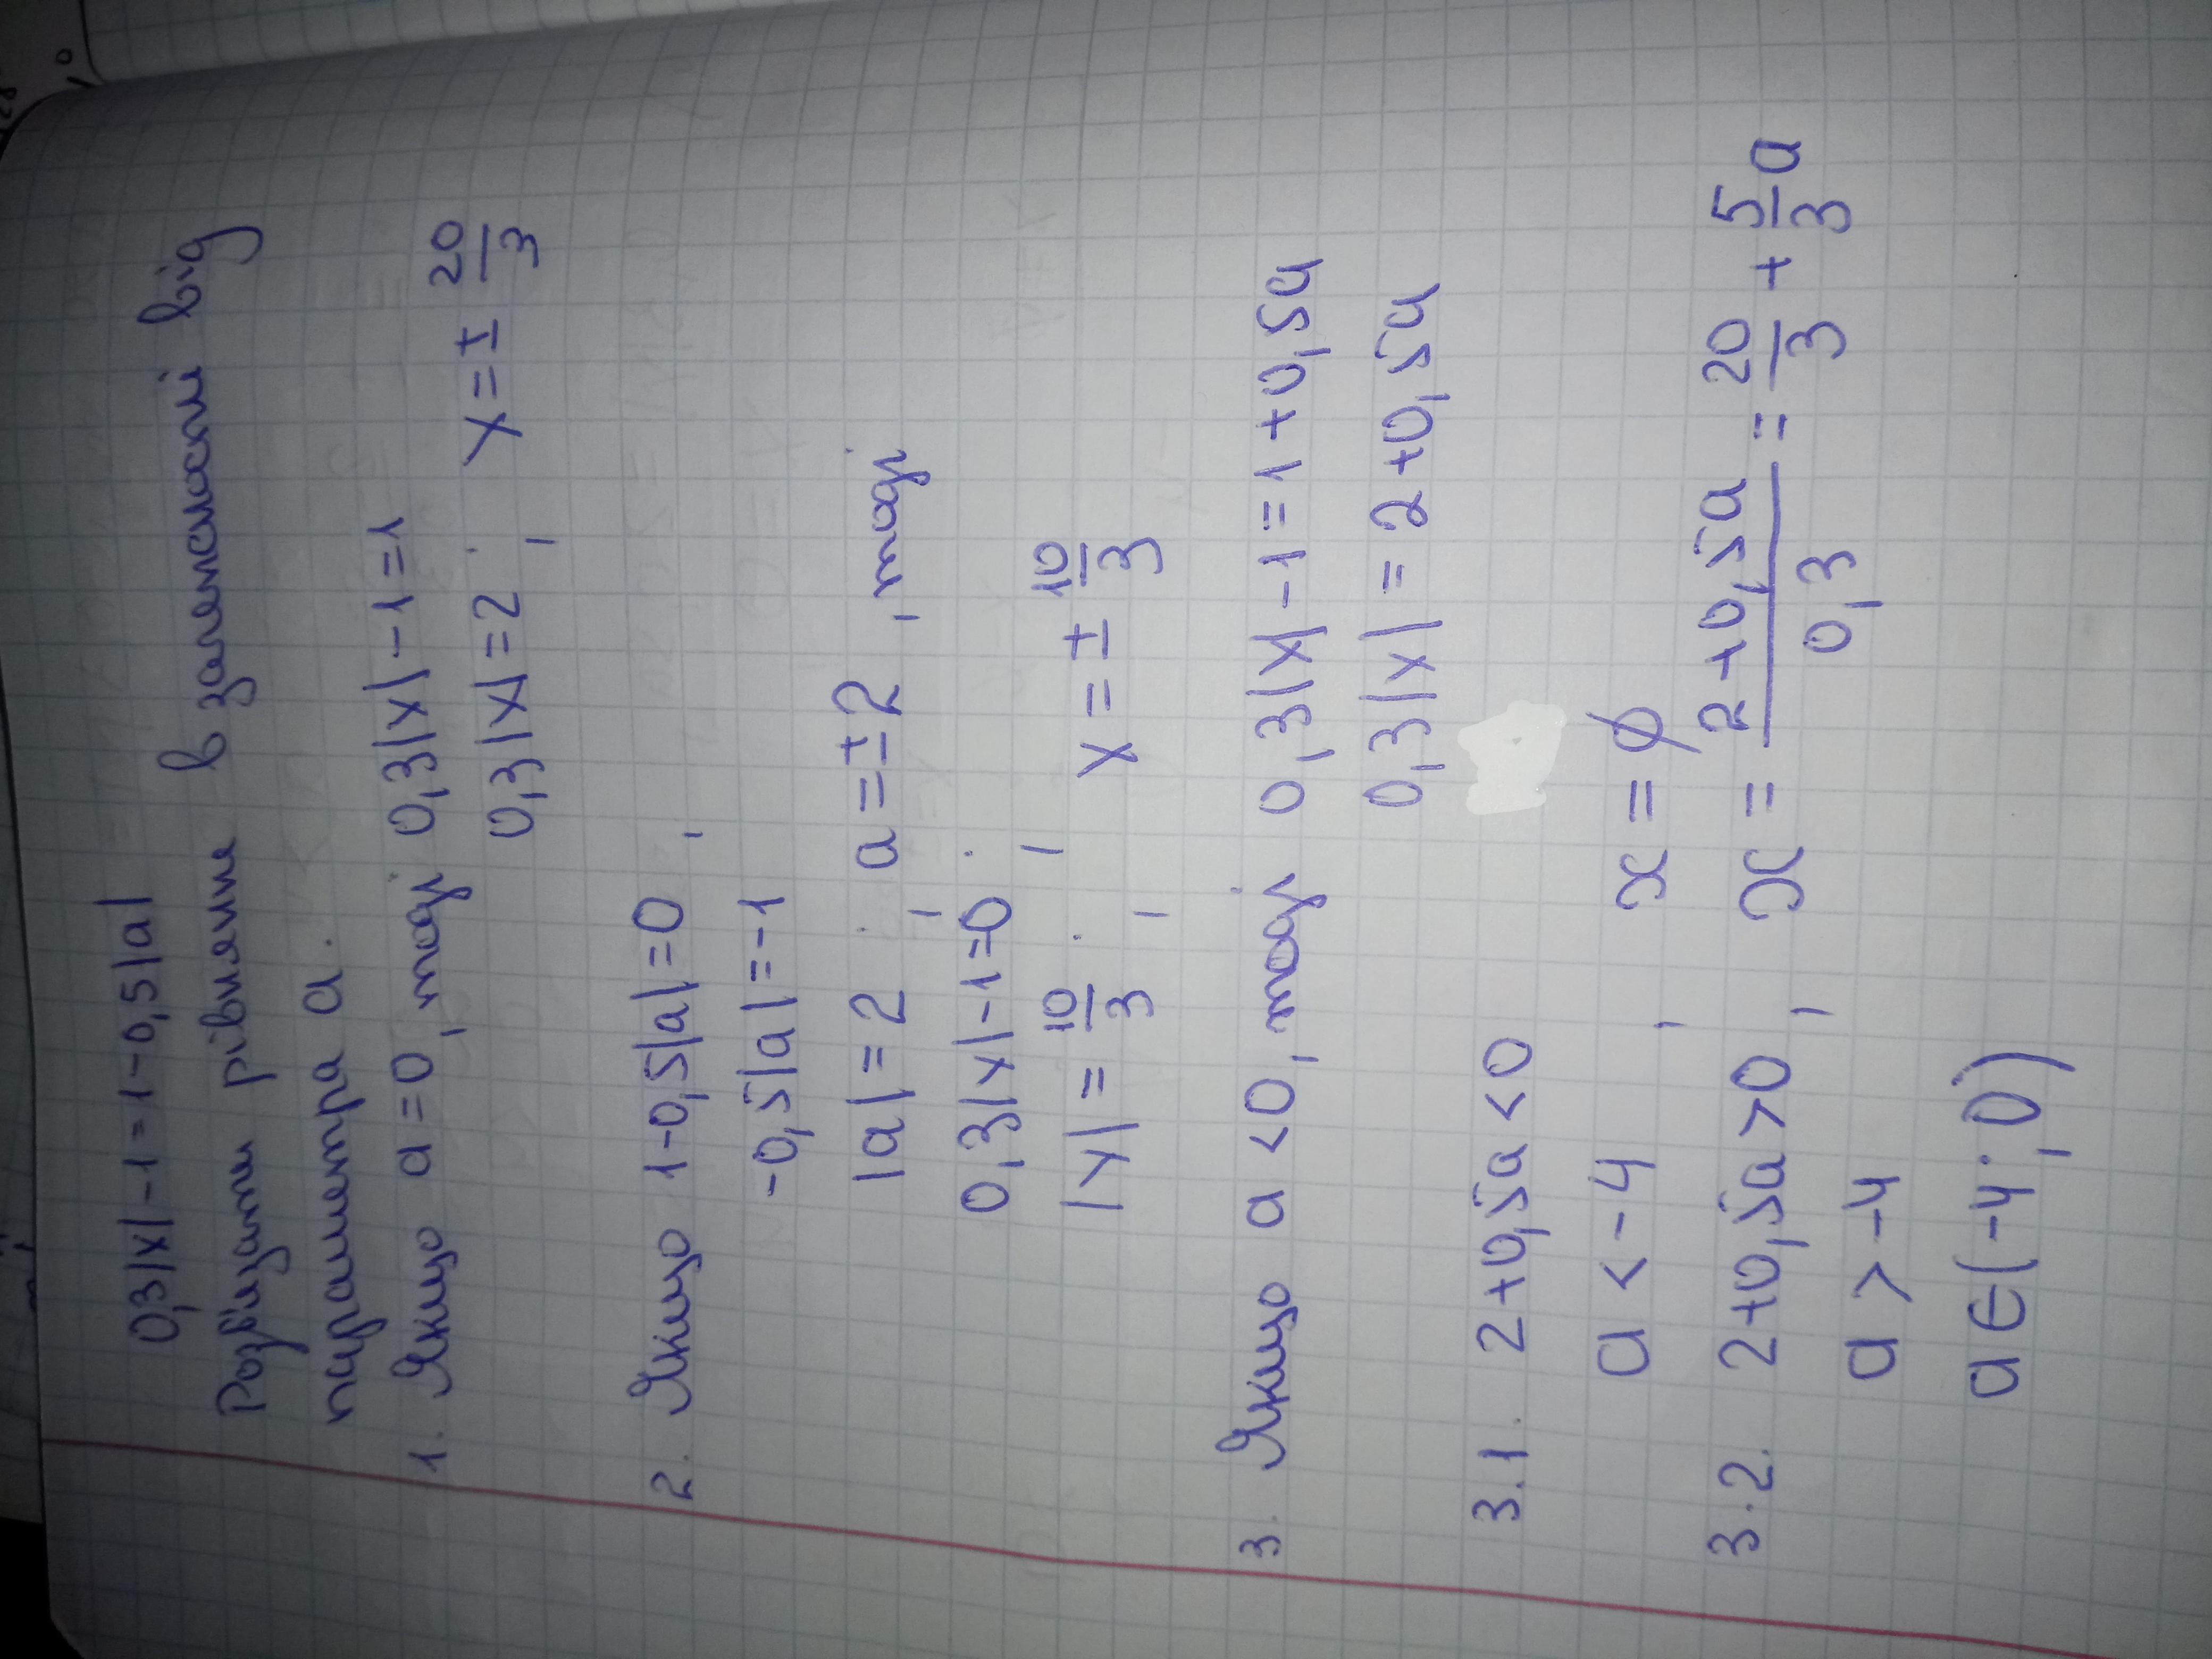 0,3|x|-1=1-0,5|a|
Розв'язати рівняння в залежності від
параметра a.
1. Якщо a=0, тоді 0,3|x|-1=1
0,3|x|=2; x=± 20/3
2. Якщо 1-0,5|a|=0,
-0,5|a|=-1
|a|=2; a=±2, тоді
0,3|x|-1=0;
|x|=10/3; x=± 10/3
3. Якщо a<0, тоді 0,3|x|-1=1+0,5a
0,3|x|=2+0,5a
3.1. 2+0,5a<0
a<-4, x=∅
3.2. 2+0,5a>0, x= 2+0,5a/0,3 = 20/3 + 5/3 a
a>-4
a∈(-4;0)